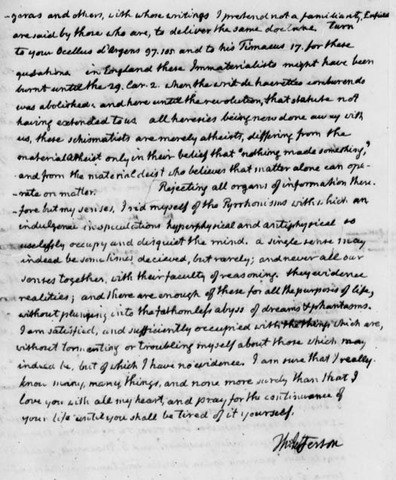 -goras and others, with whose writings I pretend not a familiarity, Enfield
are said by those who are, to deliver the same doctrine. Turn
to your Ocellus d'Argens 97. 105 and to his Timaeus 17. for these
quotations in England these Immaterialists might have been
burnt until the 29. Car. 2. when the writ de haeretico comburendo
was abolished: and here until the revolution, that statute not
having extended to us. all heresies being now done away with
us, these schismatists are merely atheists, differing from the
material atheist only in their belief that "nothing made something,"
and from the material deist who believes that matter alone can ope-
-rate on matter. Rejecting all organs of information there-
-fore but my senses, I rid myself of the Pyrrhonisms with which an
indulgence in speculations hyperphysical and antiphysical so
uselessly occupy and disquiet the mind. a single sense may
indeed be sometimes decieved, but rarely; and never all our
senses together, with their faculty of reasoning. they evidence
realities; and there are enough of these for all the purposes of life,
without plunging into the fathomless abyss of dreams & phantasms.
I am satisfied, and sufficiently occupied with the things which are,
without tormenting or troubling myself about those which may
indeed be, but of which I have no evidence. I am sure that I really
know many, many things, and none more surely than that I
love you with all my heart, and pray for the continuance of
your life until you shall be tired of it yourself.
Th: Jefferson